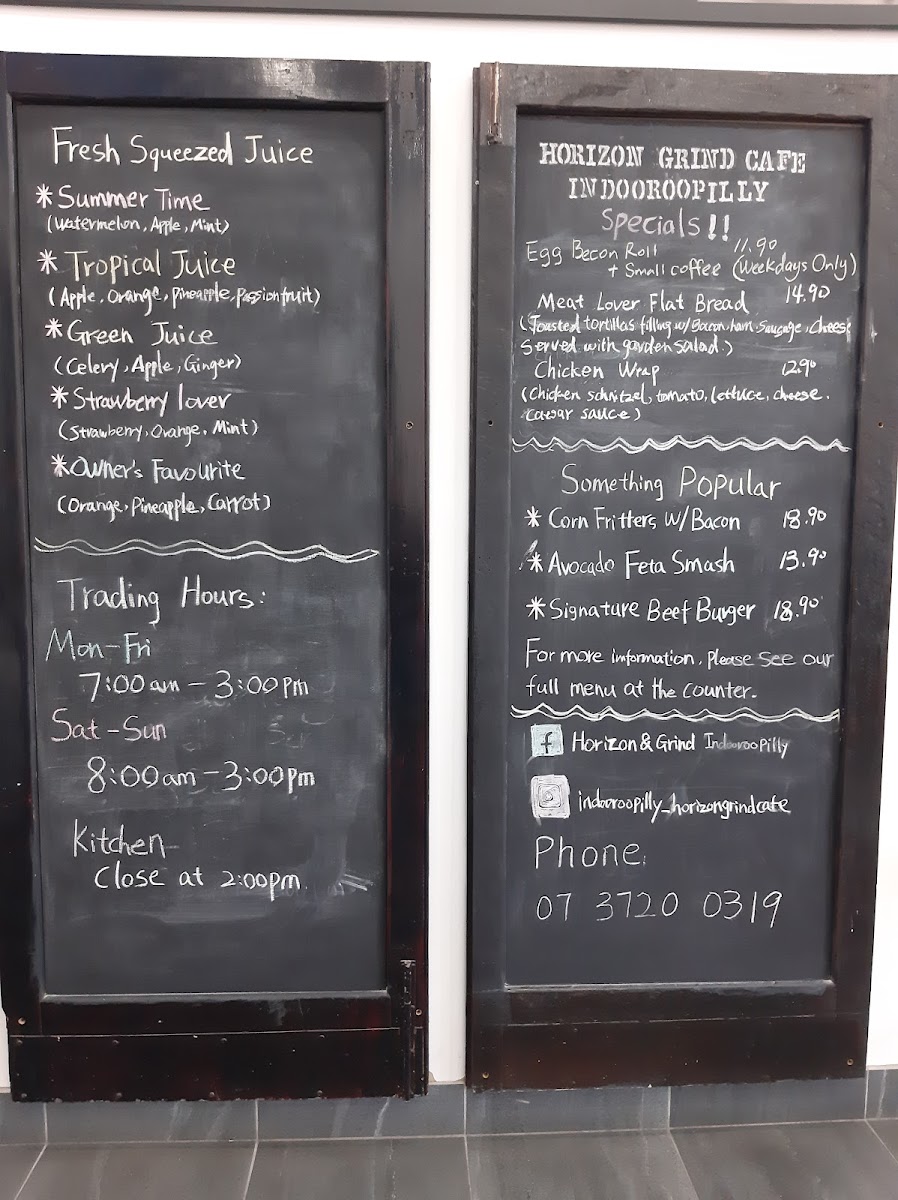 Fresh Squeezed Juice
* Summer Time
(Watermelon, Apple, Mint)
* Tropical Juice
(Apple, Orange, Pineapple, Passionfruit)
* Green Juice
(Celery, Apple, Ginger)
* Strawberry lover
(Strawberry, Orange, Mint)
* Owner's Favourite
(Orange, Pineapple, Carrot)
Trading Hours:
Mon-Fri
7:00am - 3:00pm
Sat-Sun
8:00am - 3:00pm
Kitchen
Close at 2:00pm
HORIZON GRIND CAFE
INDOOROOPILLY
Specials!!
Egg Bacon Roll 11.90
+ Small coffee (Weekdays Only)
Meat Lover Flat Bread 14.90
(Toasted tortillas filling w/Bacon, ham, Sausage, Cheese
Served with garden salad.)
Chicken Wrap 12.90
(Chicken schnitzel, tomato, lettuce, cheese,
caesar sauce)
Something Popular
* Corn Fritters W/Bacon 18.90
* Avocado Feta Smash 13.90
* Signature Beef Burger 18.90
For more information, Please see our
full menu at the counter.
f Horizon & Grind Indooroopilly
indooroopilly_horizongrindcafe
Phone:
07 3720 0319